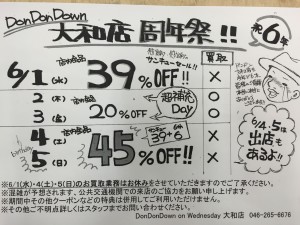 DonDonDown
大和店 周年祭!!
祝6年
サンキューセール!!
買取
6/1(水) 店内商品 39%OFF!! ×
2(木) ○
3(金) 店内商品 20%OFF!! 超補充Day ○
4(土) 店内商品 サンキュー 39・6 ×
birthday 5(日) 45%OFF!! ×
6/4.5は
出店も
あるよ!!
※6/1(水)・4(土)・5(日)のお買取業務はお休みをさせていただきますのでご了承ください。
※混雑が予想されます、公共交通機関での来店のご協力をお願い申し上げます。
※期間中その他クーポンなどの特典は併用してご利用いただけません。
※その他ご不明点詳しくはスタッフまでお問い合わせください。
DonDonDown on Wednesday 大和店 046-265-6676